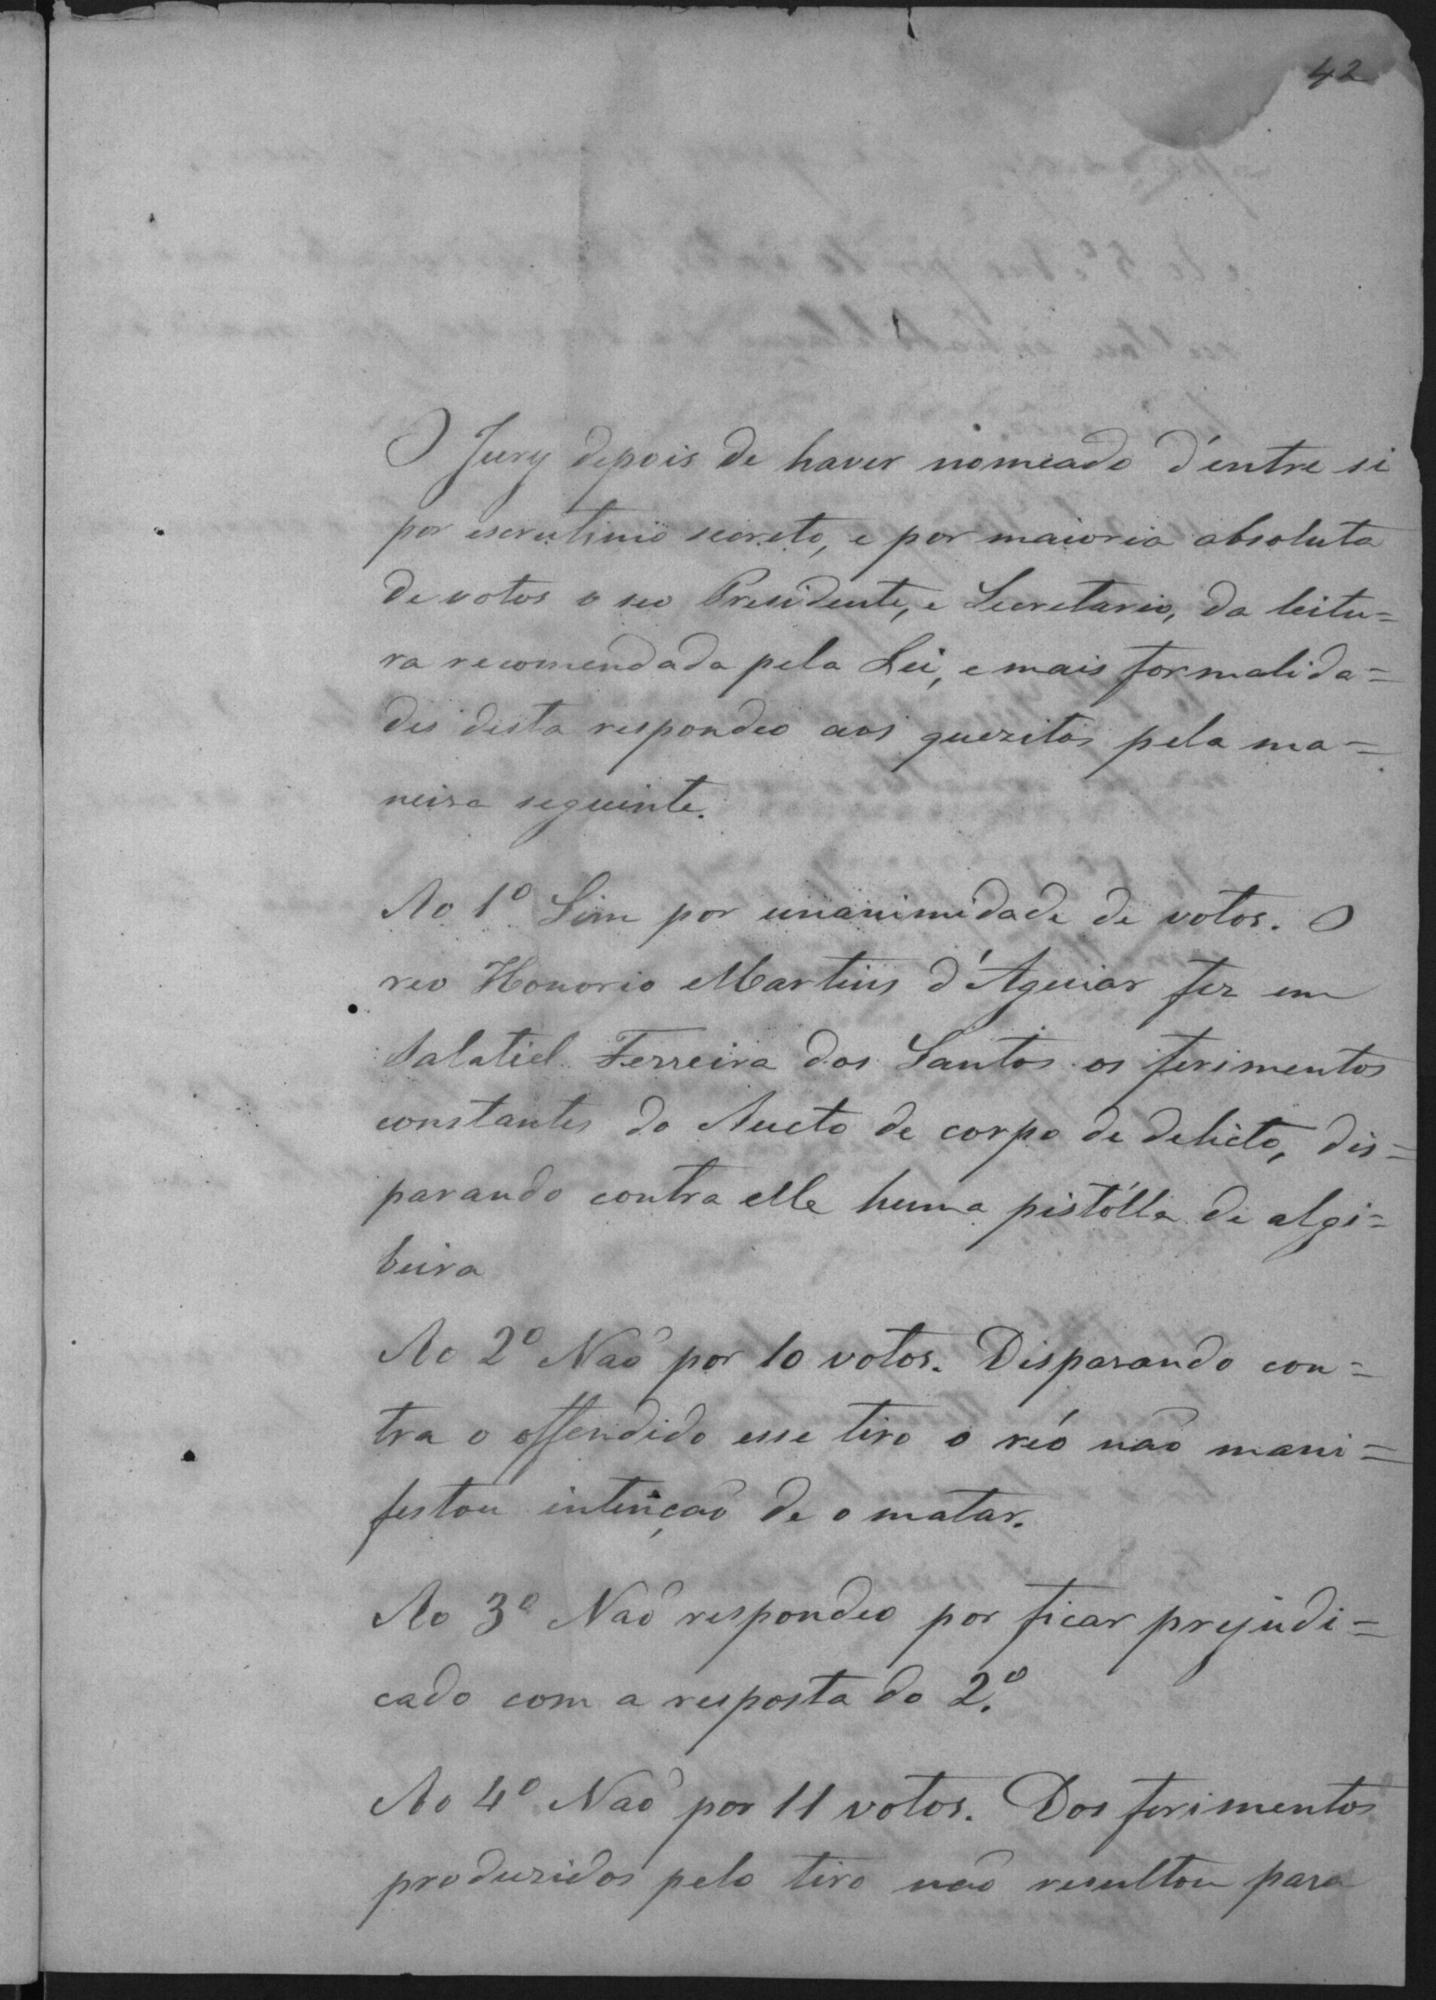 42
O Jury depois de haver nomeado d'entre si
por escrutinio secreto, e por maioria absoluta
de votos o seo Presidente, e Secretario, da leitu=
ra recomendada pela Lei, e mais formalida=
des desta respondeo aos quezitos pela ma=
neira seguinte.
Ao 1º Sim por unanimidade de votos. O
reo Honorio Martins d'Aguiar fez em
Salatiel Ferreira dos Santos os ferimentos
constantes do Aucto de corpo de delicto, dis=
parando contra elle huma pistólla de algi=
beira
Ao 2º Naõ por 10 votos. Disparando con=
tra o offendido esse tiro o réo naõ mani=
festou intençaõ de o matar.
Ao 3º Naõ respondeo por ficar prejudi=
cado com a resposta do 2º.
Ao 4º Naõ por 11 votos. Dos ferimentos
produzidos pelo tiro naõ resultou para